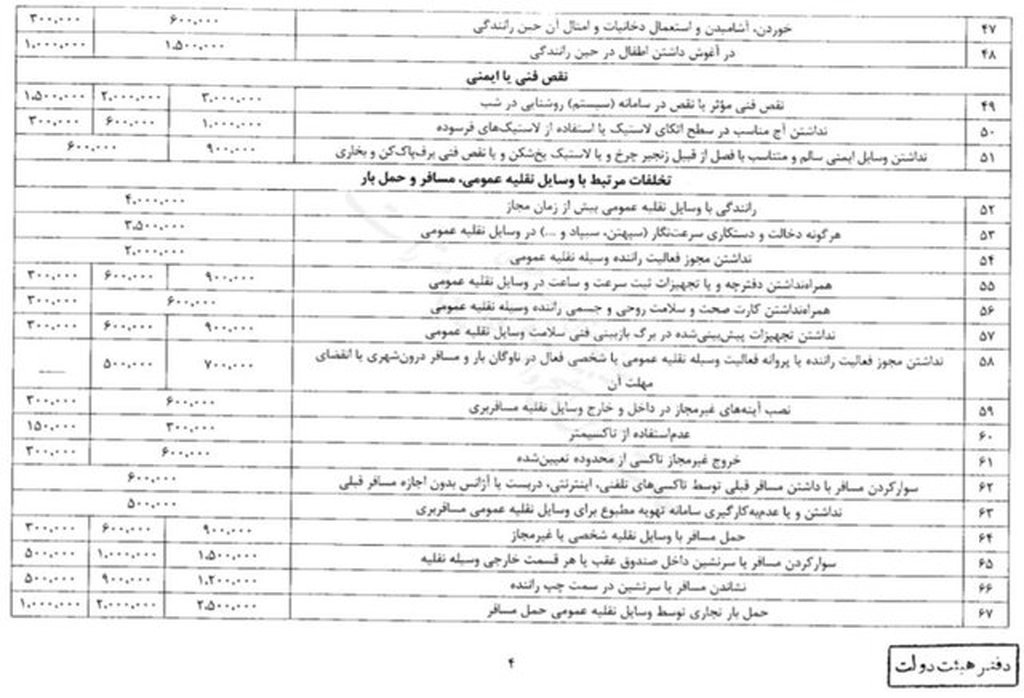 ۴۷ خوردن، آشامیدن و استعمال دخانیات و امثال آن حین رانندگی ۶۰۰،۰۰۰ ۳۰۰،۰۰۰
۴۸ در آغوش داشتن اطفال در حین رانندگی ۱،۵۰۰،۰۰۰ ۱،۰۰۰،۰۰۰
نقص فنی یا ایمنی
۴۹ نقص فنی مؤثر یا نقص در سامانه (سیستم) روشنایی در شب ۳،۰۰۰،۰۰۰ ۲،۰۰۰،۰۰۰ ۱،۵۰۰،۰۰۰
۵۰ نداشتن آج مناسب در سطح اتکای لاستیک یا استفاده از لاستیک‌های فرسوده ۱،۰۰۰،۰۰۰ ۶۰۰،۰۰۰ ۳۰۰،۰۰۰
۵۱ نداشتن وسایل ایمنی سالم و متناسب با فصل از قبیل زنجیر چرخ و یا لاستیک یخ‌شکن و یا نقص فنی برف‌پاک‌کن و بخاری ۹۰۰،۰۰۰ ۶۰۰،۰۰۰
تخلفات مرتبط با وسایل نقلیه عمومی، مسافر و حمل بار
۵۲ رانندگی با وسایل نقلیه عمومی بیش از زمان مجاز ۴،۰۰۰،۰۰۰
۵۳ هرگونه دخالت و دستکاری سرعت‌نگار (سپهتن، سیپاد و ...) در وسایل نقلیه عمومی ۳،۵۰۰،۰۰۰
۵۴ نداشتن مجوز فعالیت راننده وسیله نقلیه عمومی ۲،۰۰۰،۰۰۰
۵۵ همراه‌نداشتن دفترچه و یا تجهیزات ثبت سرعت و ساعت در وسایل نقلیه عمومی ۹۰۰،۰۰۰ ۶۰۰،۰۰۰ ۳۰۰،۰۰۰
۵۶ همراه‌نداشتن کارت صحت و سلامت روحی و جسمی راننده وسیله نقلیه عمومی ۶۰۰،۰۰۰ ۳۰۰،۰۰۰
۵۷ نداشتن تجهیزات پیش‌بینی‌شده در برگ بازبینی فنی سلامت وسایل نقلیه عمومی ۹۰۰،۰۰۰ ۶۰۰،۰۰۰ ۳۰۰،۰۰۰
۵۸ نداشتن مجوز فعالیت راننده یا پروانه فعالیت وسیله نقلیه عمومی یا شخصی فعال در ناوگان بار و مسافر درون‌شهری یا انقضای ۷۰۰،۰۰۰ ۵۰۰،۰۰۰ ——
مهلت آن
۵۹ نصب آینه‌های غیرمجاز در داخل و خارج وسایل نقلیه مسافربری ۶۰۰،۰۰۰ ۳۰۰،۰۰۰
۶۰ عدم‌استفاده از تاکسیمتر ۳۰۰،۰۰۰ ۱۵۰،۰۰۰
۶۱ خروج غیرمجاز تاکسی از محدوده تعیین‌شده ۶۰۰،۰۰۰ ۳۰۰،۰۰۰
۶۲ سوارکردن مسافر با داشتن مسافر قبلی توسط تاکسی‌های تلفنی، اینترنتی، دربست یا آژانس بدون اجازه مسافر قبلی ۶۰۰،۰۰۰
۶۳ نداشتن و یا عدم‌به‌کارگیری سامانه تهویه مطبوع برای وسایل نقلیه عمومی مسافربری ۵۰۰،۰۰۰
۶۴ حمل مسافر با وسایل نقلیه شخصی یا غیرمجاز ۹۰۰،۰۰۰ ۶۰۰،۰۰۰ ۳۰۰،۰۰۰
۶۵ سوارکردن مسافر یا سرنشین داخل صندوق عقب یا هر قسمت خارجی وسیله نقلیه ۱،۵۰۰،۰۰۰ ۱،۰۰۰،۰۰۰ ۵۰۰،۰۰۰
۶۶ نشاندن مسافر یا سرنشین در سمت چپ راننده ۱،۲۰۰،۰۰۰ ۹۰۰،۰۰۰ ۵۰۰،۰۰۰
۶۷ حمل بار تجاری توسط وسایل نقلیه عمومی حمل مسافر ۲،۵۰۰،۰۰۰ ۲،۰۰۰،۰۰۰ ۱،۰۰۰،۰۰۰
۴
دفتر هیئت دولت